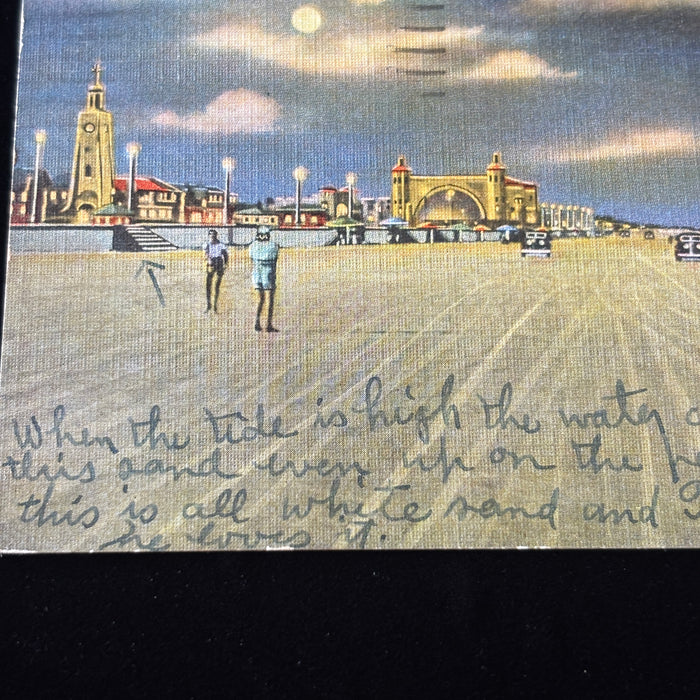 When the tide is high the water
this sand even up on the
this is all white sand and
he loves it.